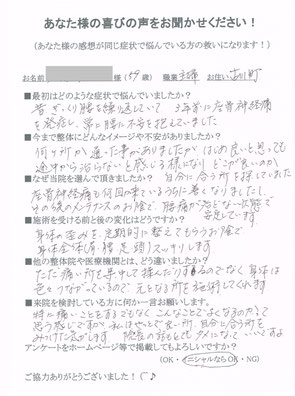 あなた様の喜びの声をお聞かせください！
（あなた様の感想が同じ症状で悩んでいる方の救いになります！）
お名前 様（59歳）職業 主婦 お住い 古川町
■最初はどのような症状で悩んでいましたか？
昔、ぎっくり腰を繰り返していて 3年前に座骨神経痛
を発症し、常に腰に不安を抱えていました
■今まで整体にどんなイメージや不安がありましたか？
何ヶ所か通った事がありましたが はじめ良いと思っても
途中から治らないと感じる様になり どこが良いのか
■なぜ当院を選んで頂きましたか？ 自分に合う所を探していました
座骨神経痛も何回か来ているうちに無くなりましたし、
その後のメンテナンスのお陰で、腰痛が治どない状態で
安定しています
■施術を受ける前と後の変化はどうですか？
身体の歪みを、定期的に整えてもらうお陰で
身体全体（肩 腰 足 頭）スッキリします
■他の整体院や医療機関とは、どう違いましたか？
ただ痛い所を集中して揉んだりするのでなく 身体は
色々つながっているので 元となる所を施術してくれます
■来院を検討している方に何か一言お願いします。
特に痛いことをするでもなく こんなことでよくなるのか？って
思う感じですが、私はやっとで良い所、自分に合う所を
みつけた気がします
アンケートをホームページ等で掲載してもよろしいですか？
（OK・イニシャルならOK・NG）
ご協力ありがとうございました！